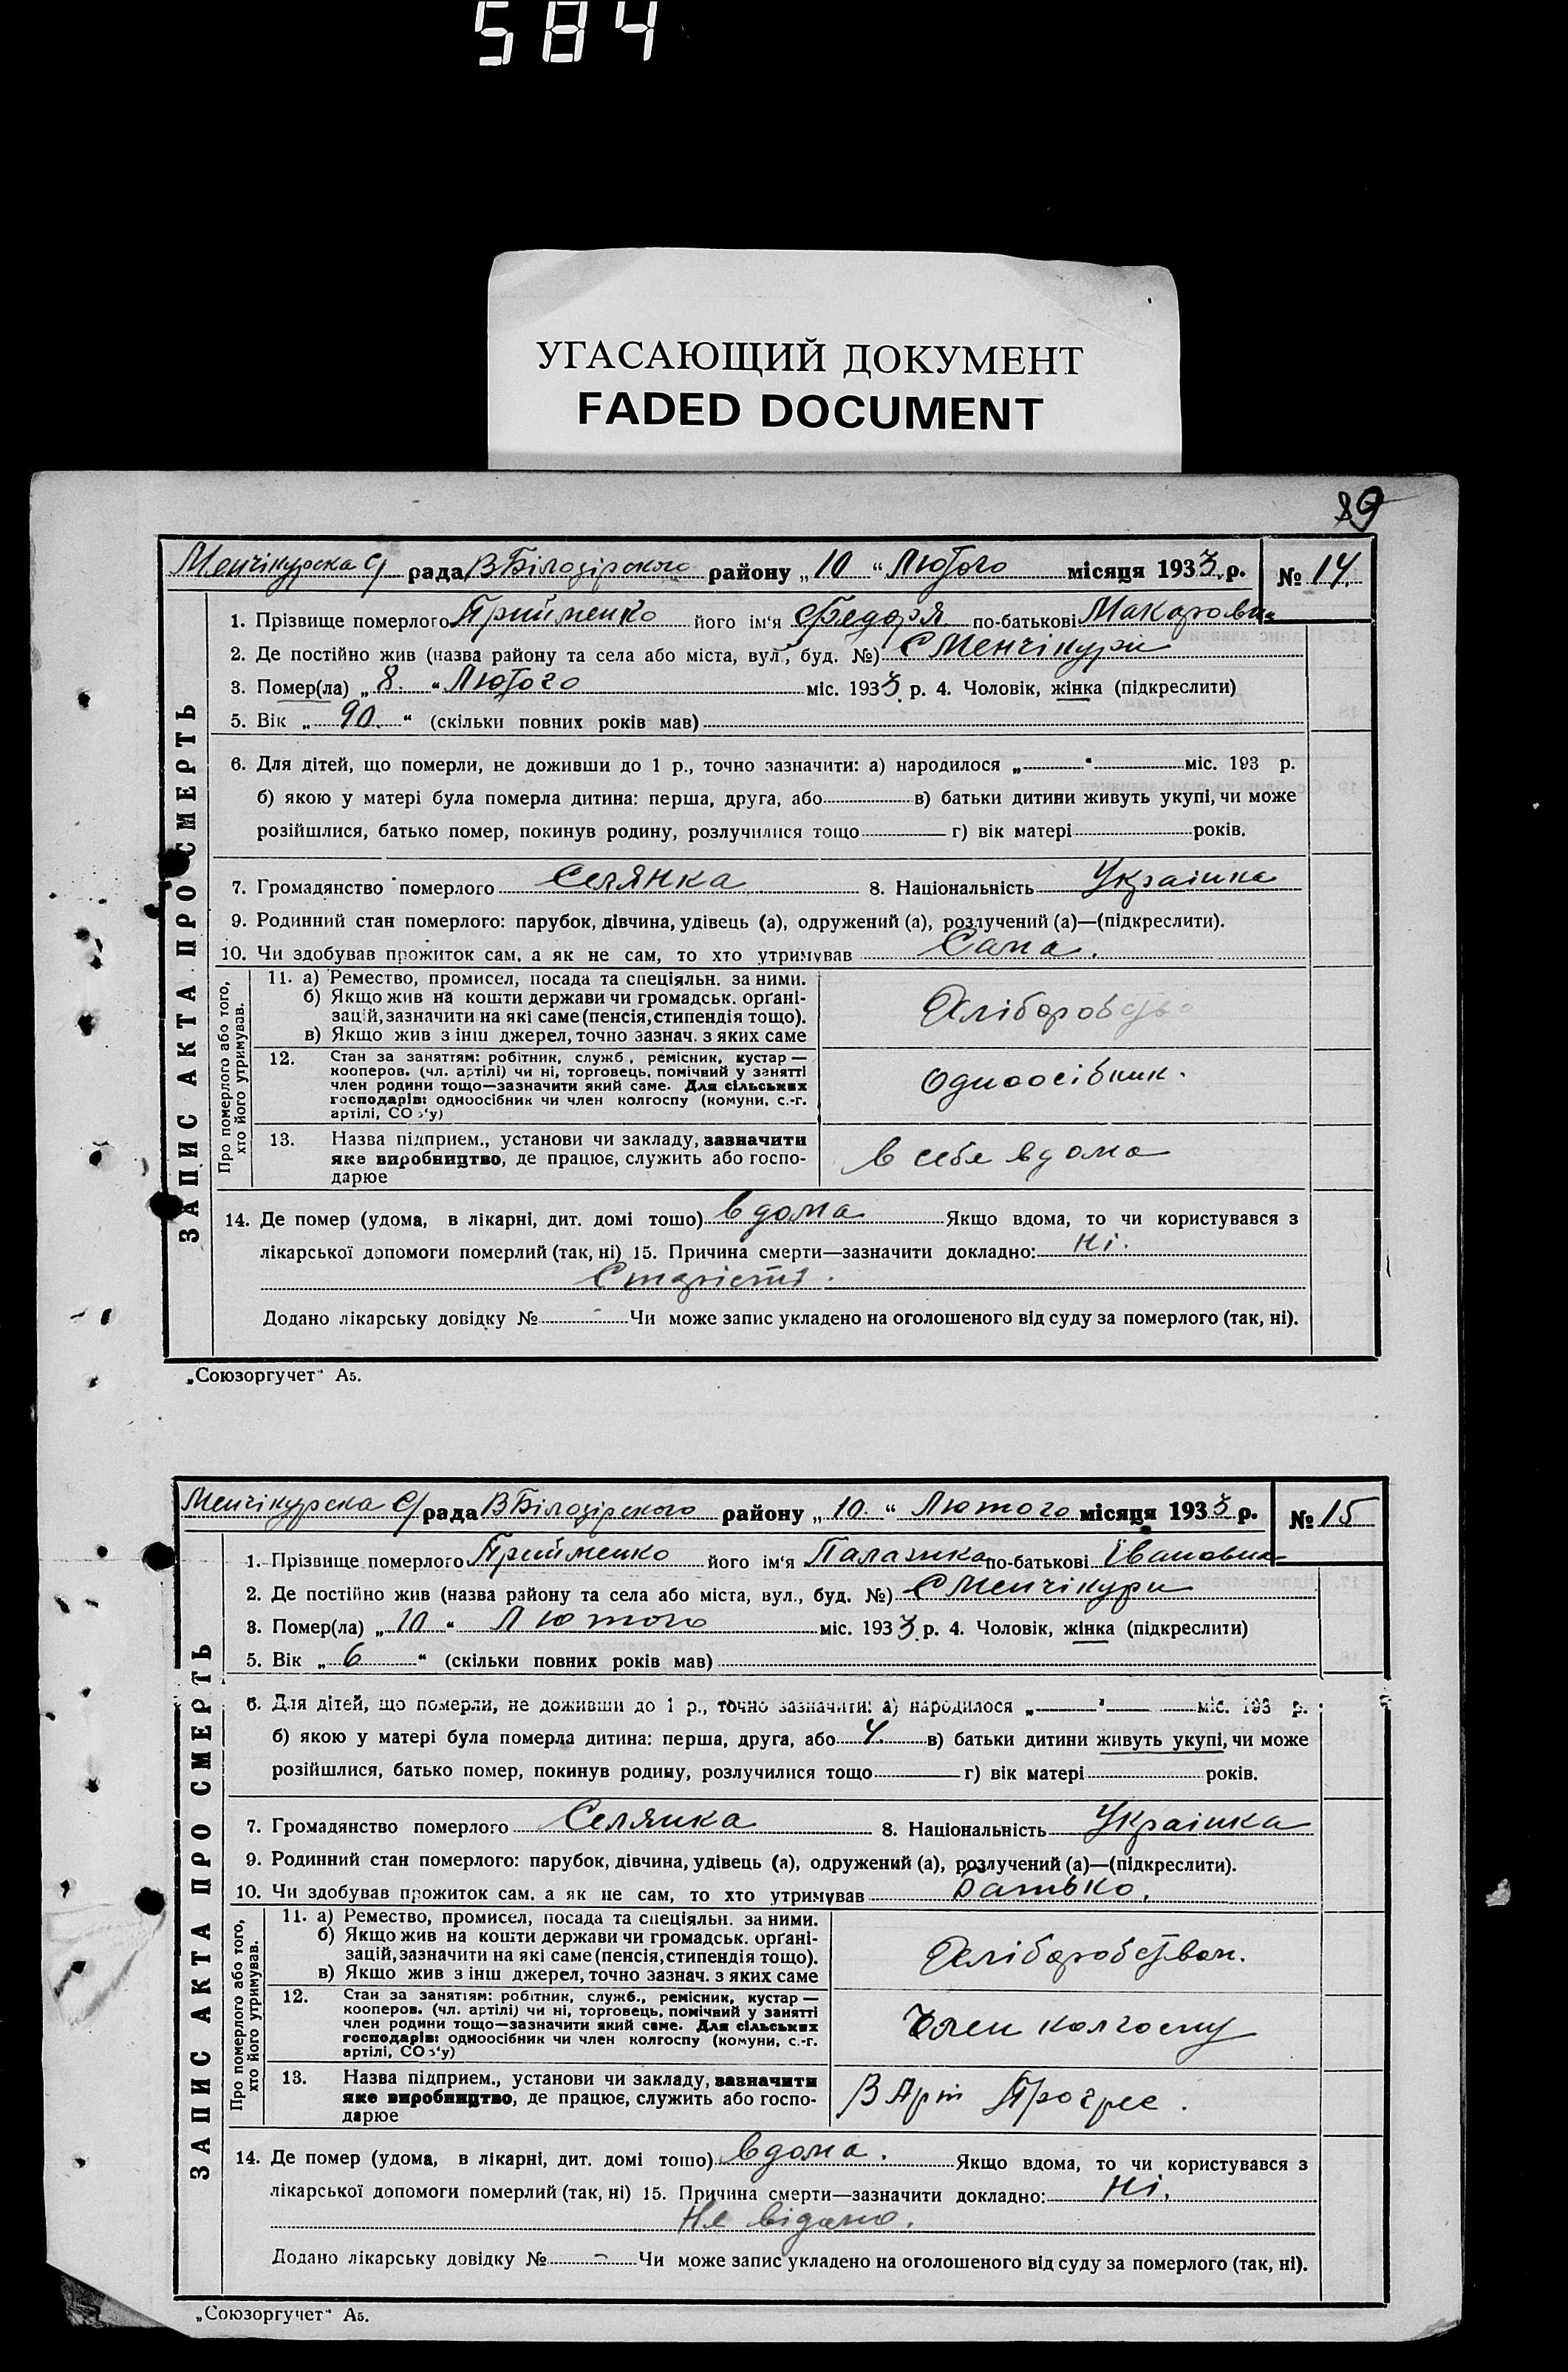 584
УГАСАЮЩИЙ ДОКУМЕНТ
FADED DOCUMENT
89
Менчікурска С/ рада В Білозірского району „10“ Лютого місяця 1933 р. № 14.
ЗАПИС АКТА ПРО СМЕРТЬ
1. Прізвище померлого Прийменко його ім‘я Федоря по-батькові Макарови
2. Де постійно жив (назва району та села або міста, вул., буд. №) С Менчікури
3. Помер(ла) „8.“ Лютого міс. 1933 р. 4. Чоловік, жінка (підкреслити)
5. Вік „90.“ (скільки повних років мав)
6. Для дітей, що померли, не доживши до 1 р., точно зазначити: а) народилося „ “ міс. 193 р.
б) якою у матері була померла дитина: перша, друга, або в) батьки дитини живуть укупі, чи може
розійшлися, батько помер, покинув родину, розлучилися тощо г) вік матері років.
7. Громадянство померлого Селянка 8. Національність Українка
9. Родинний стан померлого: парубок, дівчина, удівець (а), одружений (а), розлучений (а)—(підкреслити).
10. Чи здобував прожиток сам, а як не сам, то хто утримував Сама.
Про померлого або того,
хто його утримував.
11. а) Ремество, промисел, посада та спеціяльн. за ними.
б) Якщо жив на кошти держави чи громадськ. орґані-
зацій, зазначити на які саме (пенсія, стипендія тощо).
в) Якщо жив з інш джерел, точно зазнач. з яких саме
Хліборобство
12. Стан за заняттям: робітник, служб., ремісник, кустар —
кооперов. (чл. артілі) чи ні, торговець, помічний у занятті
член родини тощо—зазначити який саме. Для сільських
господарів: одноосібник чи член колгоспу (комуни, с.-г.
артілі, СО з‘у)
Одноосібник.
13. Назва підприєм., установи чи закладу, зазначити
яке виробництво, де працює, служить або госпо-
дарює
в себе вдома
14. Де помер (удома, в лікарні, дит. домі тощо) вдома Якщо вдома, то чи користувався з
лікарської допомоги померлий (так, ні) 15. Причина смерти—зазначити докладно: Ні.
Старість.
Додано лікарську довідку № - Чи може запис укладено на оголошеного від суду за померлого (так, ні).
„Союзоргучет“ А5.
Менчікурска С/ рада В Білозірского району „10.“ Лютого місяця 1933 р. № 15
ЗАПИС АКТА ПРО СМЕРТЬ
1. Прізвище померлого Прийменко його ім‘я Палажка по-батькові Івановни
2. Де постійно жив (назва району та села або міста, вул., буд. №) С Менчікури
3. Помер(ла) „10“ Лютого міс. 1933 р. 4. Чоловік, жінка (підкреслити)
5. Вік „6“ (скільки повних років мав)
6. Для дітей, що померли, не доживши до 1 р., точно зазначити: а) народилося „ “ міс. 193 р.
б) якою у матері була померла дитина: перша, друга, або 4. в) батьки дитини живуть укупі, чи може
розійшлися, батько помер, покинув родину, розлучилися тощо г) вік матері років.
7. Громадянство померлого Селянка 8. Національність Українка
9. Родинний стан померлого: парубок, дівчина, удівець (а), одружений (а), розлучений (а)—(підкреслити).
10. Чи здобував прожиток сам, а як не сам, то хто утримував Батько.
Про померлого або того,
хто його утримував.
11. а) Ремество, промисел, посада та спеціяльн. за ними.
б) Якщо жив на кошти держави чи громадськ. орґані-
зацій, зазначити на які саме (пенсія, стипендія тощо).
в) Якщо жив з інш джерел, точно зазнач. з яких саме
Хліборобством.
12. Стан за заняттям: робітник, служб., ремісник, кустар —
кооперов. (чл. артілі) чи ні, торговець, помічний у занятті
член родини тощо—зазначити який саме. Для сільських
господарів: одноосібник чи член колгоспу (комуни, с.-г.
артілі, СО з‘у)
Член колгоспу
13. Назва підприєм., установи чи закладу, зазначити
яке виробництво, де працює, служить або госпо-
дарює
В Арт Прогрес.
14. Де помер (удома, в лікарні, дит. домі тощо) вдома. Якщо вдома, то чи користувався з
лікарської допомоги померлий (так, ні) 15. Причина смерти—зазначити докладно: Ні.
Не відомо.
Додано лікарську довідку № - Чи може запис укладено на оголошеного від суду за померлого (так, ні).
„Союзоргучет“ А5.